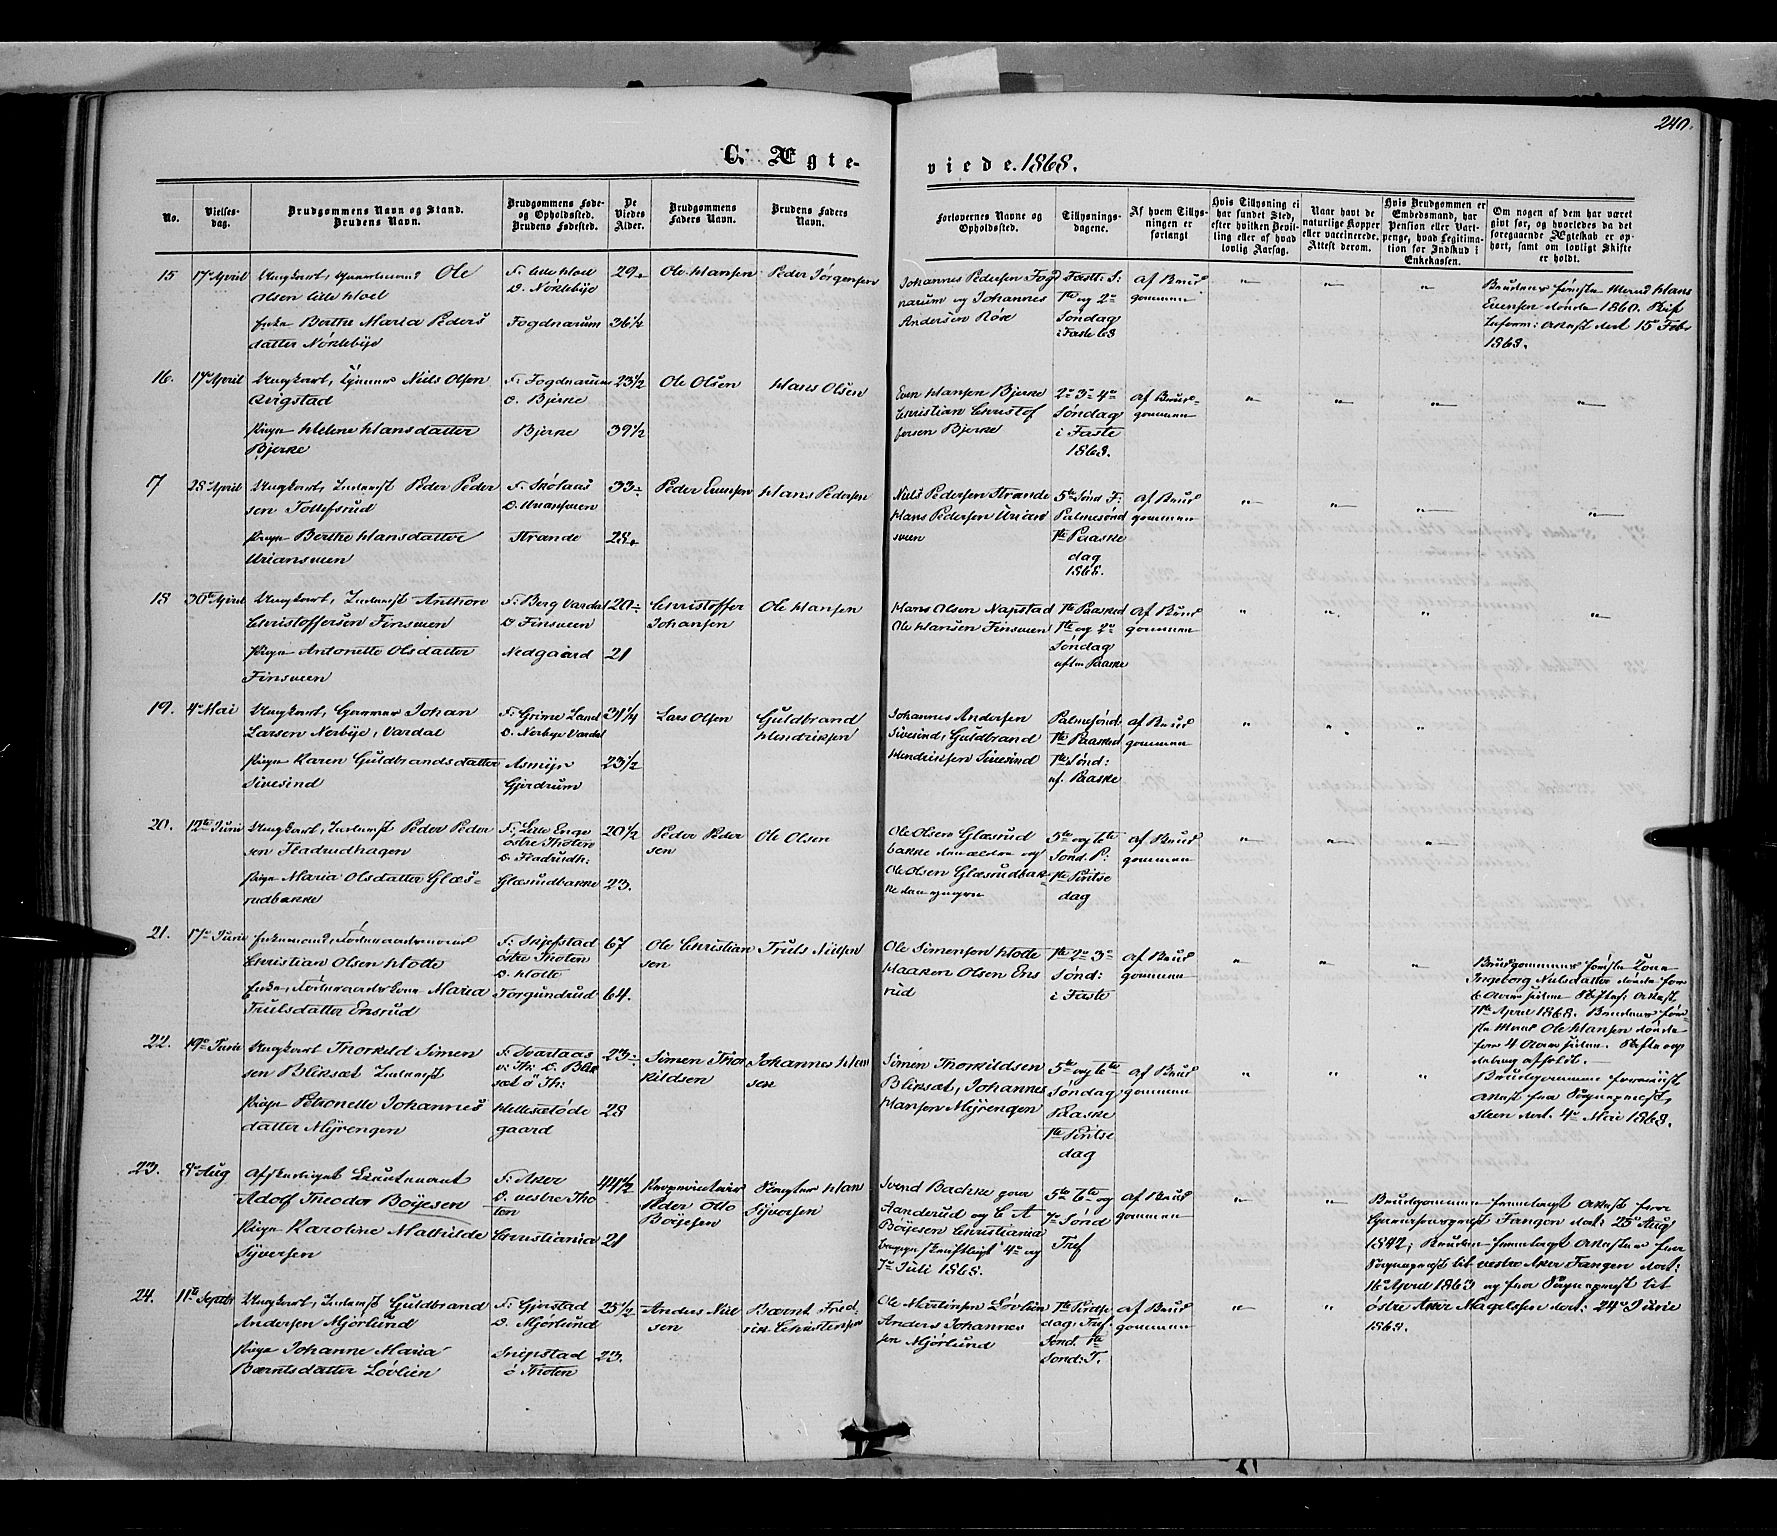 240.
C. Ægte-
viede. 1868.
No.
Vielses-
dag.
Brudgommens Navn og Stand.
Brudens Navn.
Brudgommens Føde-
og Opholdssted.
Brudens Fødested.
De
Viedes
Alder.
Brudgommens
Faders Navn.
Brudens Faders
Navn.
Forlovernes Navne og
Opholdssted.
Tillysnings-
dagene.
Af hvem Tillys-
ningen er
forlangt
Hvis Tillysning ei
har fundet Sted,
efter hvilken Bevil-
ling eller af hvad
lovlig Aarsag.
Naar havt de
naturlige Kopper
eller vaccinerede.
Attest derom.
Hvis Brudgommen er
Embedsmand, har
Pension eller Vart-
penge, hvad Legitima-
tion for Indskud i
Enkekassen.
Om nogen af dem har været
givt før, og hvorledes da det
foregaaende Ægteskab er op-
hørt, samt om lovligt Skifte
er holdt.
15 17de April Ungkarl, Ole
Olsen Lille Hoel
Enke Berthe Maria Peders
datter Nøklebye
F. Lille Hoel
O. Nøklebye
Fogdnarum
29.
36 1/2
Ole Hansen
Peder Jörgensen
Johannes Pedersen Fogd
narum og Johannes
Andersen Röse
Fastl: S:
1te og 2den
Søndag
i Faste 68
af Brud
gommen
Brudens første Mand Hans
Evensen døde 1860. Skif
Attest dat 15de Febr
1868.
16. 17de April Ungkarl, Niels Olsen
Qvigstad
Pigen Helene Hansdatter
Bjerke
F. Fogdnarum
O. Bjerke
Bjerke
23 1/2
39 1/2
Ole Olsen
Hans Olsen
Even Hansen Bjerke
Christian Christof
fersen Bjerke
2den 3de 4de
Søndag
i Faste
1868.
af Brud-
gommen
17 28de April Ungkarl, Inderst Peder Peder
sen Tollefsrud
Pigen Berthe Hansdatter
Urianseien
F. Skölaas
Strande
33
28.
Peder Evensen
Hans Pedersen
Niels Pedersen Strande
Hans Pedersen Urian
seien
5te Sønd F:
Palmesönd
1te Paaske
dag
1868.
af Brud
gommen
18 30te April Ungkarl, Inderst Anthon
Christoffersen Finseien
Pigen Antonette Olsdatter
Finseien
F. Berg Vardal
O Finseien
Nedgaard
20
21
Christoffer
Johansen
Ole Hansen
Hans Olsen Napstad
Ole Hansen Finseien
1te Paasked
1te og 2den
Søndag
efter Paaske
af Brud
gommen
19. 4de Mai Ungkarl, Johan
Larsen Norbye, Vardal
Pigen Karen Guldbrandsdatter
Sivesind
F. Grime Land
O. Norbye Vardal
Asmyr
Gjerdrum
31 1/4
23 1/2
Lars Olsen
Guldbrand
Hendriksen
Johannes Andersen
Sivesind, Guldbrand
Hendriksen Sivesind
Palmesönd
1te Paasked
1te Sønd:
ef. Paaske
af Brud
gommen
20. 12te Juni Ungkarl, Inderst Peder Peder
sen Fladrudhagen
Pigen Maria Olsdatter Glæs-
rudbakke
F. Lille Enge
østre Thoten
O. Fladrudh:
Glæsrudbakke
20 1/2
23.
Peder Peder
sen
Ole Olsen
Ole Olsen Glæsrud
bakke den ældre og
Ole Olsen Glæsrudbak-
ke den yngre
5te og 6te
Sønd. P:
1te Pintse
dag
af Brud
gommen
21. 17de Juni Enkemand,
Christian Olsen Hotte
Enke, Maria
Trulsdatter Ensrud
F. Skjefstad
østre Thoten
O. Hotte
Torgundrud
67
64.
Ole Christian
sen
Truls Nielsen
Ole Simensen Hotte
Haaken Olsen Ens
rud
1te 2den 3de
Sønd:
i Faste
af Brud
gommen
Brudgommens første Kone
Ingeborg Nielsdatter døde for
6 Aar siden Attest
11te April 1868. Brudens før-
ste Mand Ole Hansen døde
for 4 Aar siden. Skifte og
deling afholdt.
22. 19de Juni Ungkarl Thorkild Simen
sen Bliksæt Inderst
Pigen Petronelle Johannes
datter Myrengen
F. Svartaas
v. Th: O. Blik
sæt ö Th:
Hellesetøde
gaard
23
28
Simen Thor
kildsen
Johannes Han
sen
Simen Thorkildsen
Bliksæt, Johannes
Hansen Myrengen
5te og 6te
Søndag
Paaske
1te Pintse
dag
af Brud
gommen
Brudgommen foreviist
Attest fra Sognepræst
Steen dat. 4de Mai 1868.
23. 8de Aug Afskediget Lieutenant
Adolf Theodor Böyesen
Pigen Karoline Mathilde
Syversen
F. Aker
O. vestre Tho
ten
Christiania
44 1/2
21
Proprietair
Peder Otto
Böyesen
Han
Syversen
Svend Bache paa
Aanderud og C A
Böyesen Christiania
begge skriftligt 4de og
7de Juli 1868.
5te 6te og
7de Sønd
Tref
af Brud
gommen
Brudgommen fremlagt Attest fra
Fangen dat: 25de Aug
1842; Bruden fremlagt Attester fra
Sognepræst til vestre Aker Fangen dat:
16de April 1863 og fra Sognepræst til
østre Aker Magelssen dat: 24de Juni
1868.
24. 11te Septbr Ungkarl, Inderst Guldbrand
Andersen Mjörlund
Pige Johanne Maria
Bærntsdatter Lövlien
F. Gjerstad
O. Mjörlund
Snipstad
ö Thoten
25 1/2
23.
Anders Niel
sen
Bærnt Fred-
rik Christensen
Ole Martinsen Lövlien
Anders Johannes
sen Mjörlund
1te Pintse
dag, Tref.
Sønd. 1te
Sønd: T.
af Brud
gommen